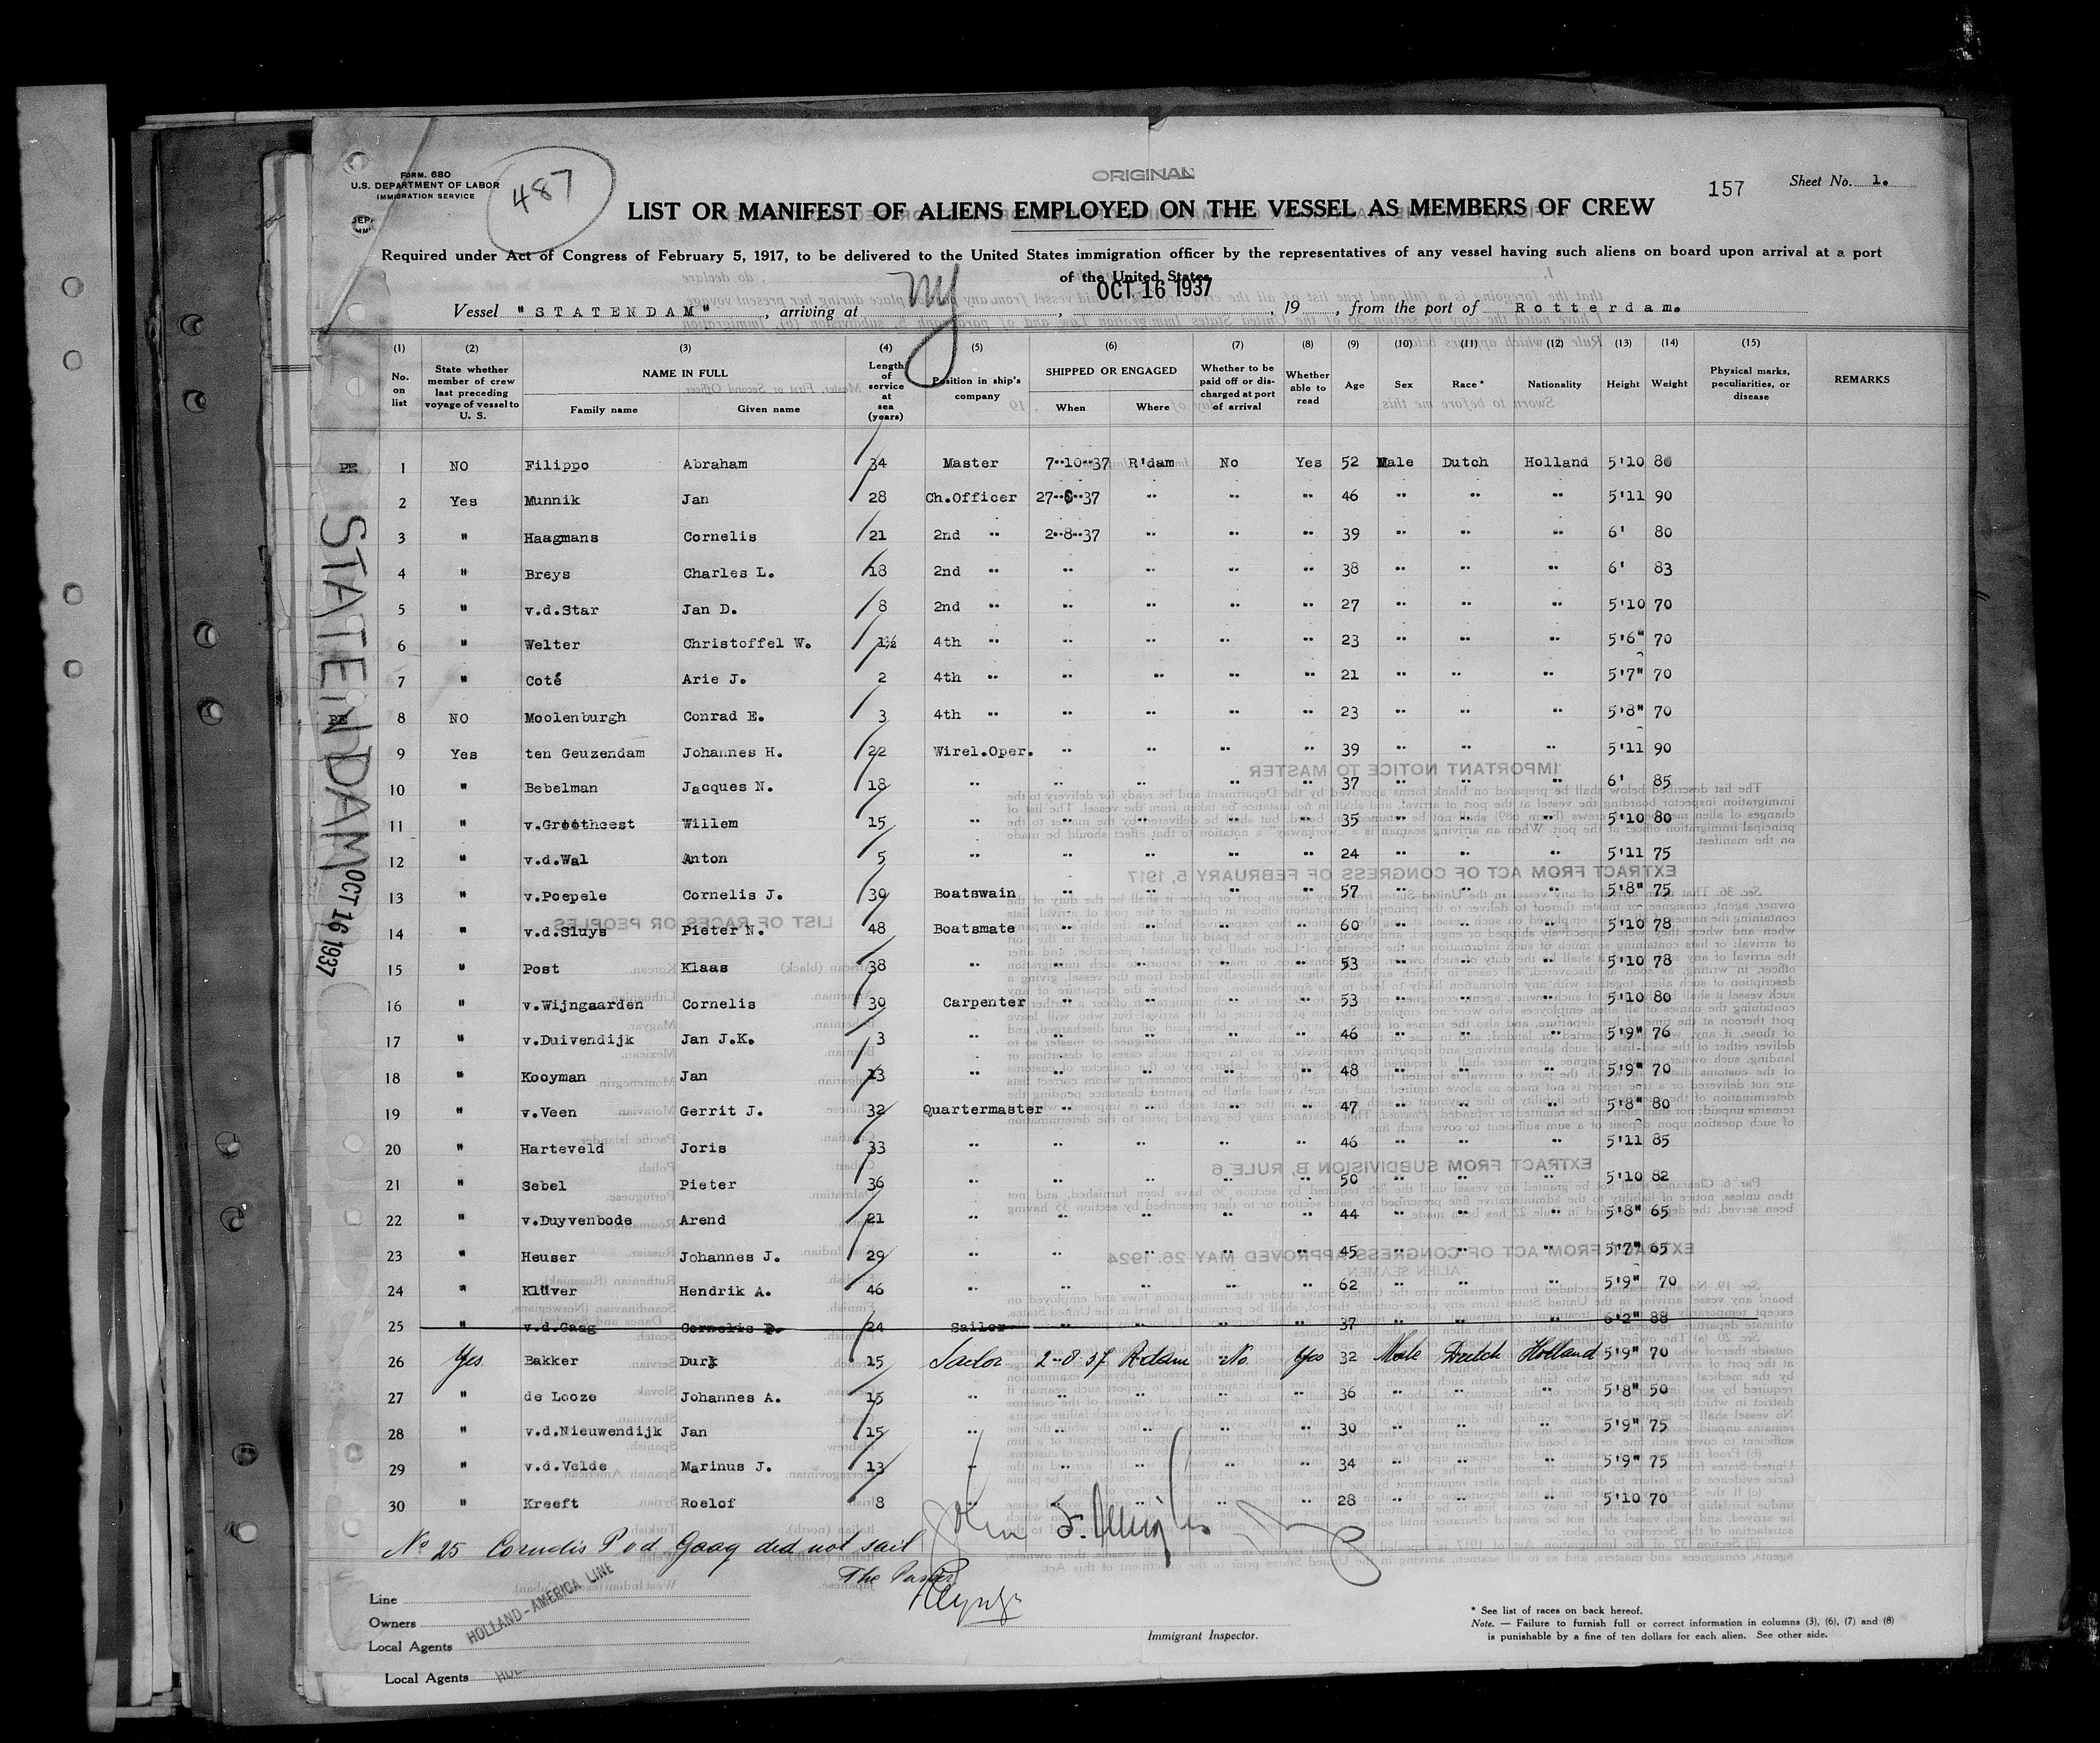 FORM. 680
U.S. DEPARTMENT OF LABOR
IMMIGRATION SERVICE
487
ORIGINAL
157
Sheet No. 1.
LIST OR MANIFEST OF ALIENS EMPLOYED ON THE VESSEL AS MEMBERS OF CREW
Required under Act of Congress of February 5, 1917, to be delivered to the United States immigration officer by the representatives of any vessel having such aliens on board upon arrival at a port
of the United States
OCT 16 1937
Vessel "STATENDAM", arriving at NY, 19, from the port of Rotterdam.
(1) (2) (3) (4) (5) (6) (7) (8) (9) (10) (11) (12) (13) (14) (15)
No. on list State whether member of crew last preceding voyage of vessel to U. S. NAME IN FULL Family name Given name Length of service at sea (years) Position in ship's company SHIPPED OR ENGAGED When Where Whether to be paid off or discharged at port of arrival Whether able to read Age Sex Race* Nationality Height Weight Physical marks, peculiarities, or disease REMARKS
1 NO Filippo Abraham 34 Master 7--10--37 R'dam No Yes 52 Male Dutch Holland 5'10 80
2 Yes Munnik Jan 28 Ch.Officer 27--6--37 " " " 46 " " " 5'11 90
3 " Haagmans Cornelis 21 2nd " 2--8--37 " " " 39 " " " 6' 80
4 " Breys Charles L. 18 2nd " " " " " 38 " " " 6' 83
5 " v.d.Star Jan D. 8 2nd " " " " " 27 " " " 5'10 70
6 " Welter Christoffel W. 1½ 4th " " " " " 23 " " " 5'6" 70
7 " Coté Arie J. 2 4th " " " " " 21 " " " 5'7" 70
8 NO Moolenburgh Conrad E. 3 4th " " " " " 23 " " " 5'8" 70
9 Yes ten Geuzendam Johannes H. 22 Wirel.Oper. " " " " 39 " " " 5'11 90
10 " Bebelman Jacques N. 18 " " " " " 37 " " " 6' 85
11 " v.Grootheest Willem 15 " " " " " 35 " " " 5'10 80
12 " v.d.Wal Anton 5 " " " " " 24 " " " 5'11 75
13 " v.Poepele Cornelis J. 39 Boatswain " " " " 57 " " " 5'8" 75
14 " v.d.Sluys Pieter N. 48 Boatsmate " " " " 60 " " " 5'10 78
15 " Post Klaas 38 " " " " " 53 " " " 5'10 78
16 " v.Wijngaarden Cornelis 30 Carpenter " " " " 53 " " " 5'10 80
17 " v.Duivendijk Jan J.K. 3 " " " " " 46 " " " 5'9" 76
18 " Kooyman Jan 23 " " " " " 48 " " " 5'9" 70
19 " v.Veen Gerrit J. 32 Quartermaster " " " " 47 " " " 5'8" 80
20 " Harteveld Joris 33 " " " " " 46 " " " 5'11 85
21 " Sebel Pieter 36 " " " " " 50 " " " 5'10 82
22 " v.Duyvenbode Arend 21 " " " " " 44 " " " 5'8" 65
23 " Heuser Johannes J. 29 " " " " " 45 " " " 5'7" 65
24 " Klüver Hendrik A. 46 " " " " " 62 " " " 5'9" 70
25 " v.d.Gaag Cornelis P. 24 Sailor " " " " 37 " " " 6'2" 88
26 Yes Bakker Durk 15 Sailor 2-8 37 Rdam No Yes 32 Male Dutch Holland 5'9" 70
27 " de Looze Johannes A. 15 " " " " " 36 " " " 5'8" 50
28 " v.d.Nieuwendijk Jan 15 " " " " " 30 " " " 5'9" 75
29 " v.d.Velde Marinus J. 13 " " " " " 34 " " " 5'9" 75
30 " Kreeft Roelof 8 " " " " " 28 " " " 5'10 70
No 25 Cornelis P v d Gaag did not sail
The
Line
Owners
Local Agents
HOLLAND-AMERICA LINE
Local Agents
Immigrant Inspector.
* See list of races on back hereof.
Note. — Failure to furnish full or correct information in columns (3), (6), (7) and (8)
is punishable by a fine of ten dollars for each alien. See other side.
STATENDAM OCT 16 1937